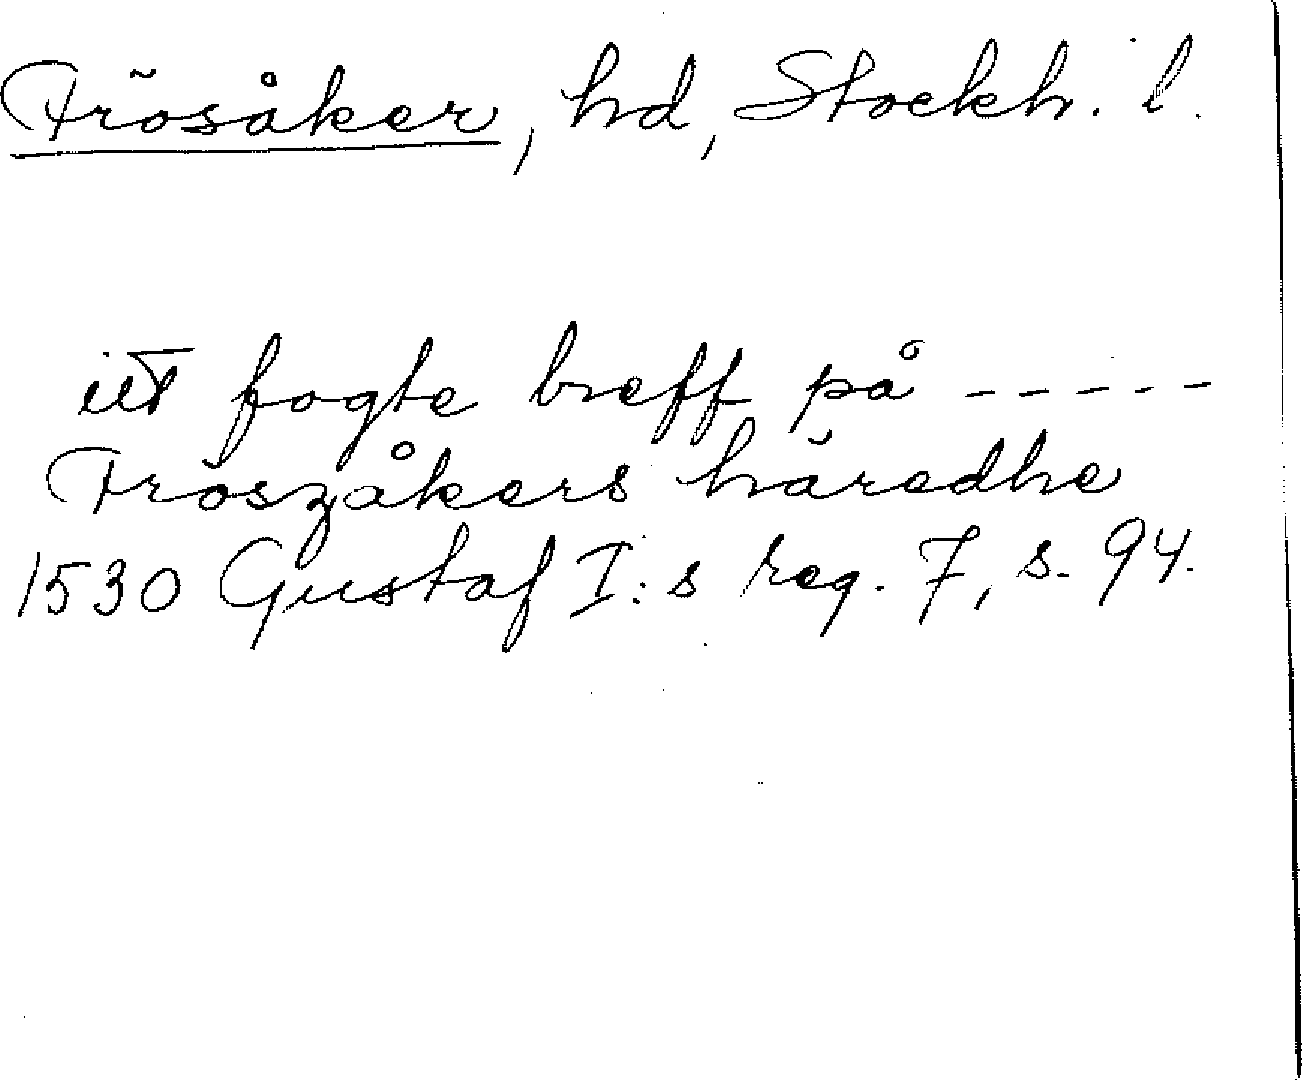 Frösåker, hd, Stockh. l.
itt fogte breff på - - - - -
Fröszåkers häredhe
1530 Gustaf I:s reg. 7, s. 94.